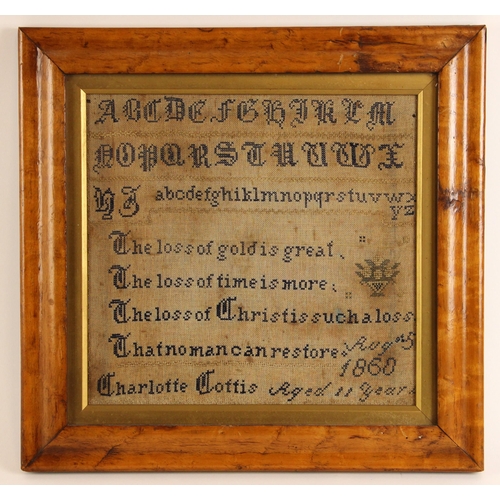 ABCDEFGHIKLM
NOPQRSTUUWX
YZ abcdefghiklmnopqrstuvwx
yz
The loss of gold is great
The loss of time is more
The loss of Christ is such a loss
That no man can restore Aug 5
1860
Charlotte Cottis Aged 11 Years